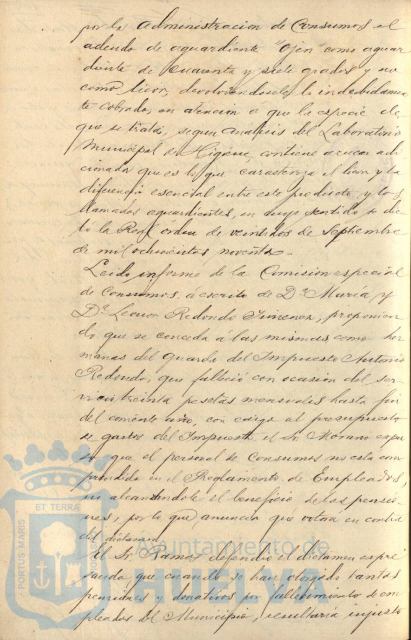 por la Administracion de Consumos el
adeudo de aguardiente "Ojen" como aguar
diente de cuarenta y siete grados y no
como licor, devolviendosele lo indebidamen
te cobrado, en atencion a que la especie de
que se trata, segun analisis del Laboratorio
Municipal de Higiene, contiene azucar adi
cionada que es lo que caracteriza el licor y la
diferencia esencial entre este producto y los
llamados aguardientes, en cuyo sentido se dic
tó la Real orden de veintidos de Septiembre
de mil ochocientos noventa.
Leido informe de la Comision especial
de Consumos, á escrito de Dª Maria y
Dª Leonor Redondo Jimenez, proponien
do que se conceda á las mismas como her
manas del guarda del Impuesto Antonio
Redondo, que falleció con ocasion del ser
vicio treinta pesetas mensuales hasta fin
del corriente año, con cargo al presupuesto
de gastos del Impuesto, el Sr. Morano expu
so que el personal de Consumos no está com
prendido en el Reglamento de Empleados,
no alcanzandole el beneficio de las pensio
nes, por lo que anuncia que votará en contra
del dictamen.
El Sr. Ramos defendió el dictamen expre
sando que cuando se han otorgado tantas
pensiones y donativos por fallecimiento de em
pleados del Municipio, resultaria injusto
PORTUS MARIS
ET TERRÆ
Ayuntamiento de